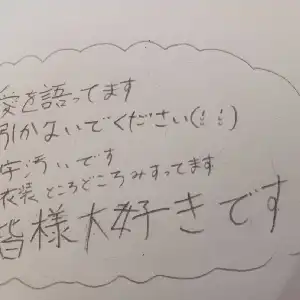 愛を語ってます
引かないでください(; ;)
字汚いです
衣装ところどころみすってます
皆様大好きです